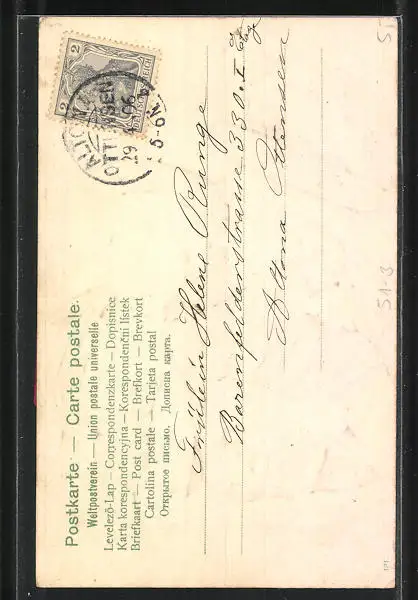 Postkarte — Carte postale.
Weltpostverein — Union postale universelle
Levelező-Lap — Correspondenzkarte — Dopisnice
Karta korespondencyjna — Korespondenční lístek
Briefkaart — Post card — Brefkort — Brevkort
Cartolina postale — Tarjeta postal
Открытое письмо. Дописна карта.
2 2
REICH
ALTONA
OTTENSEN
29
06
5-6N
Fräulein Helene Runge
Barenfelderstrasse 330. I Etg
Altona Ottensen
51-3